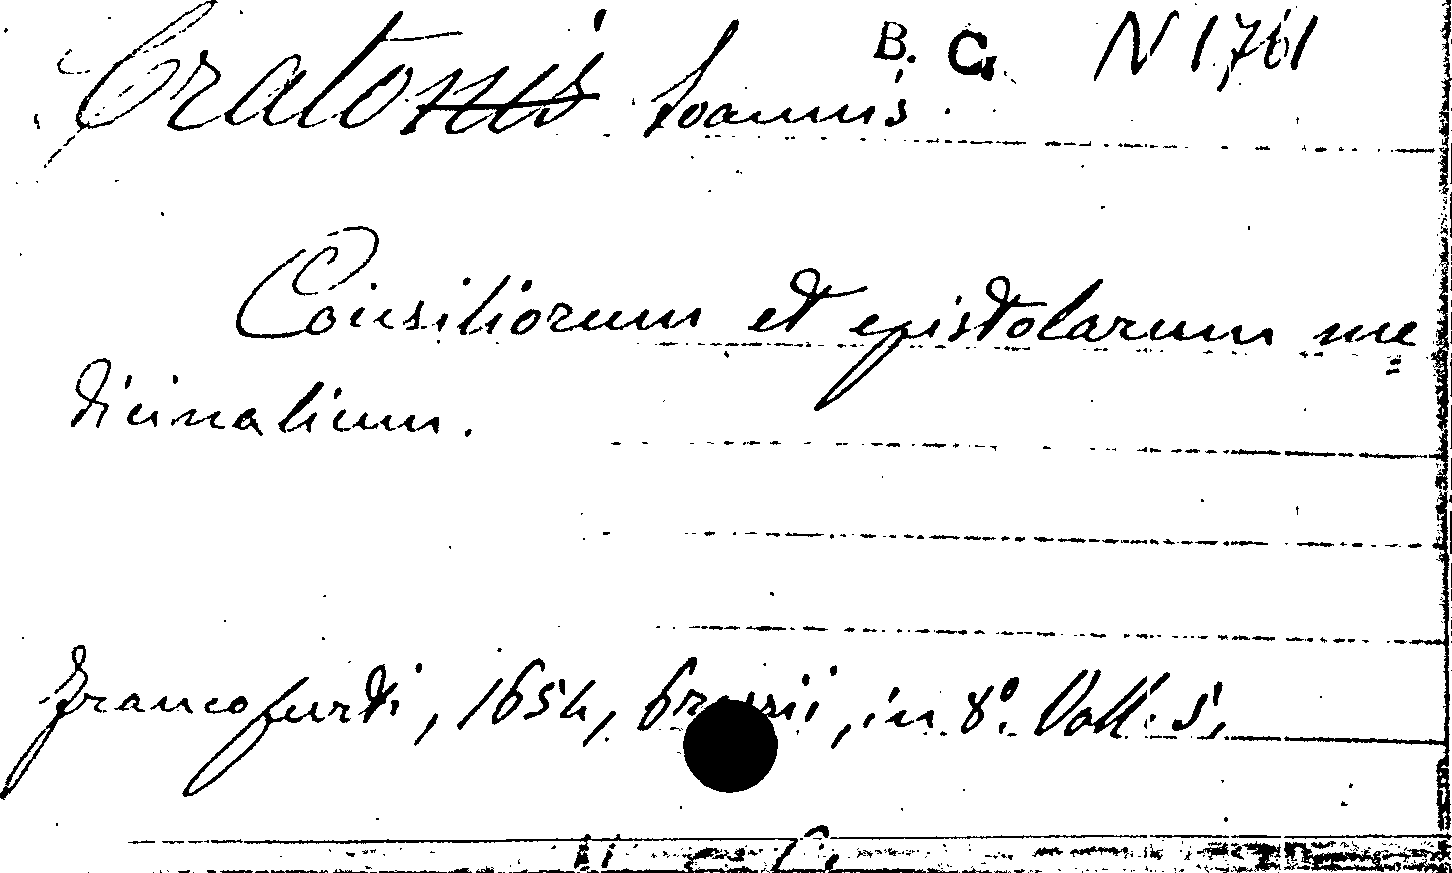 B. C. N 1761
Cratonis Ioannis
Consiliorum et epistolarum me=
dicinalium.
Francofurti, 1654, in 8º. Voll. 5,